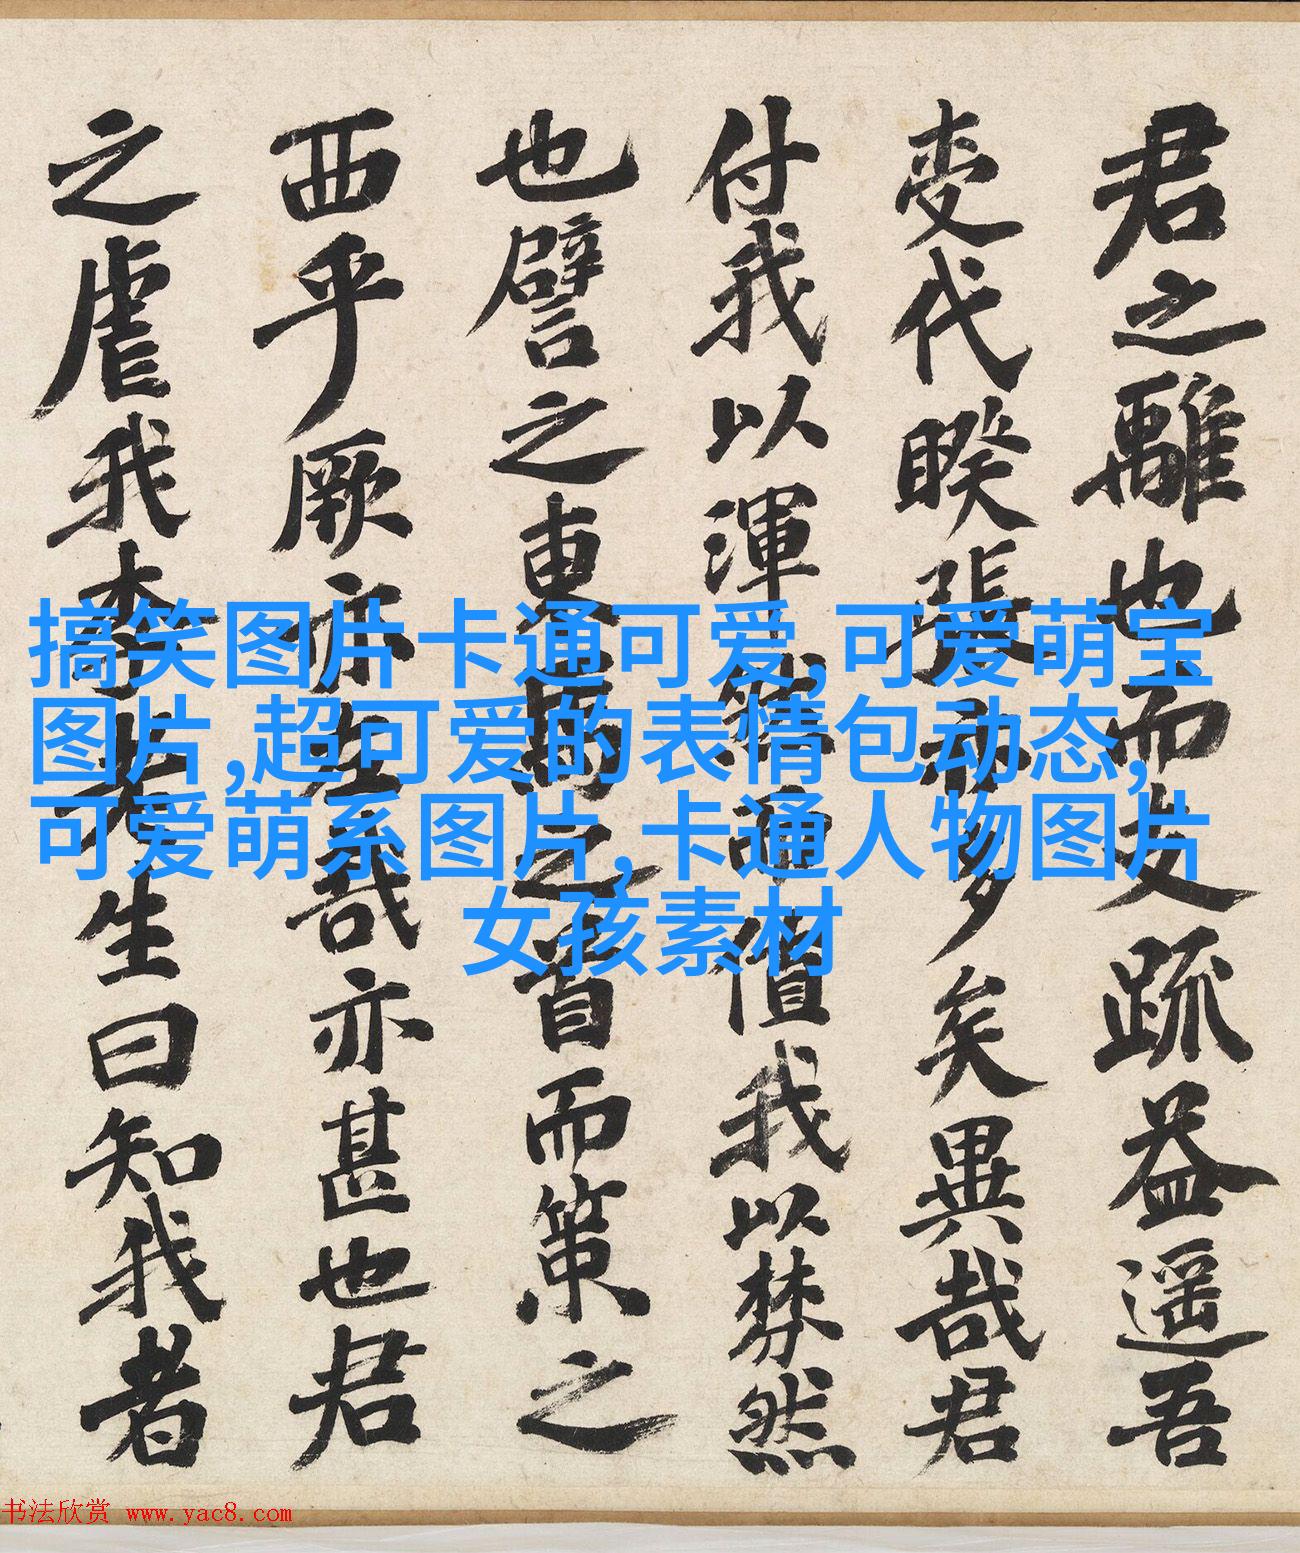 君之離也而疏益遥吾
代睽張亦多矣異哉君
付我以渾雜值我以棼然
也譬之東之首而策之
西乎厥亦左哉亦甚也君
之虐我李先生曰知我者
搞笑图片卡通可爱,可爱萌宝
图片,超可爱的表情包动态,
可爱萌系图片,卡通人物图片
女孩素材
书法欣赏 www.yac8.com